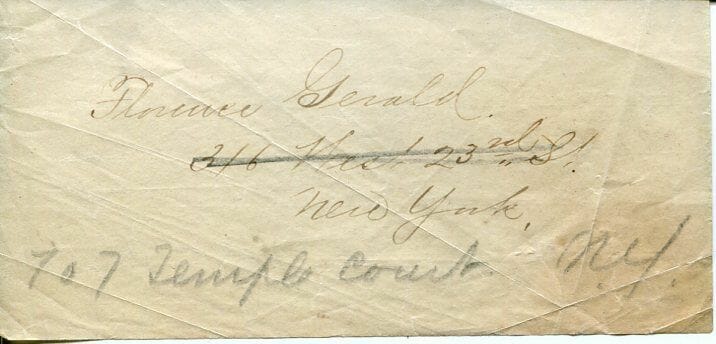 Florence Gerald.
316 West 23rd St.
New York.
707 Temple Court N.Y.